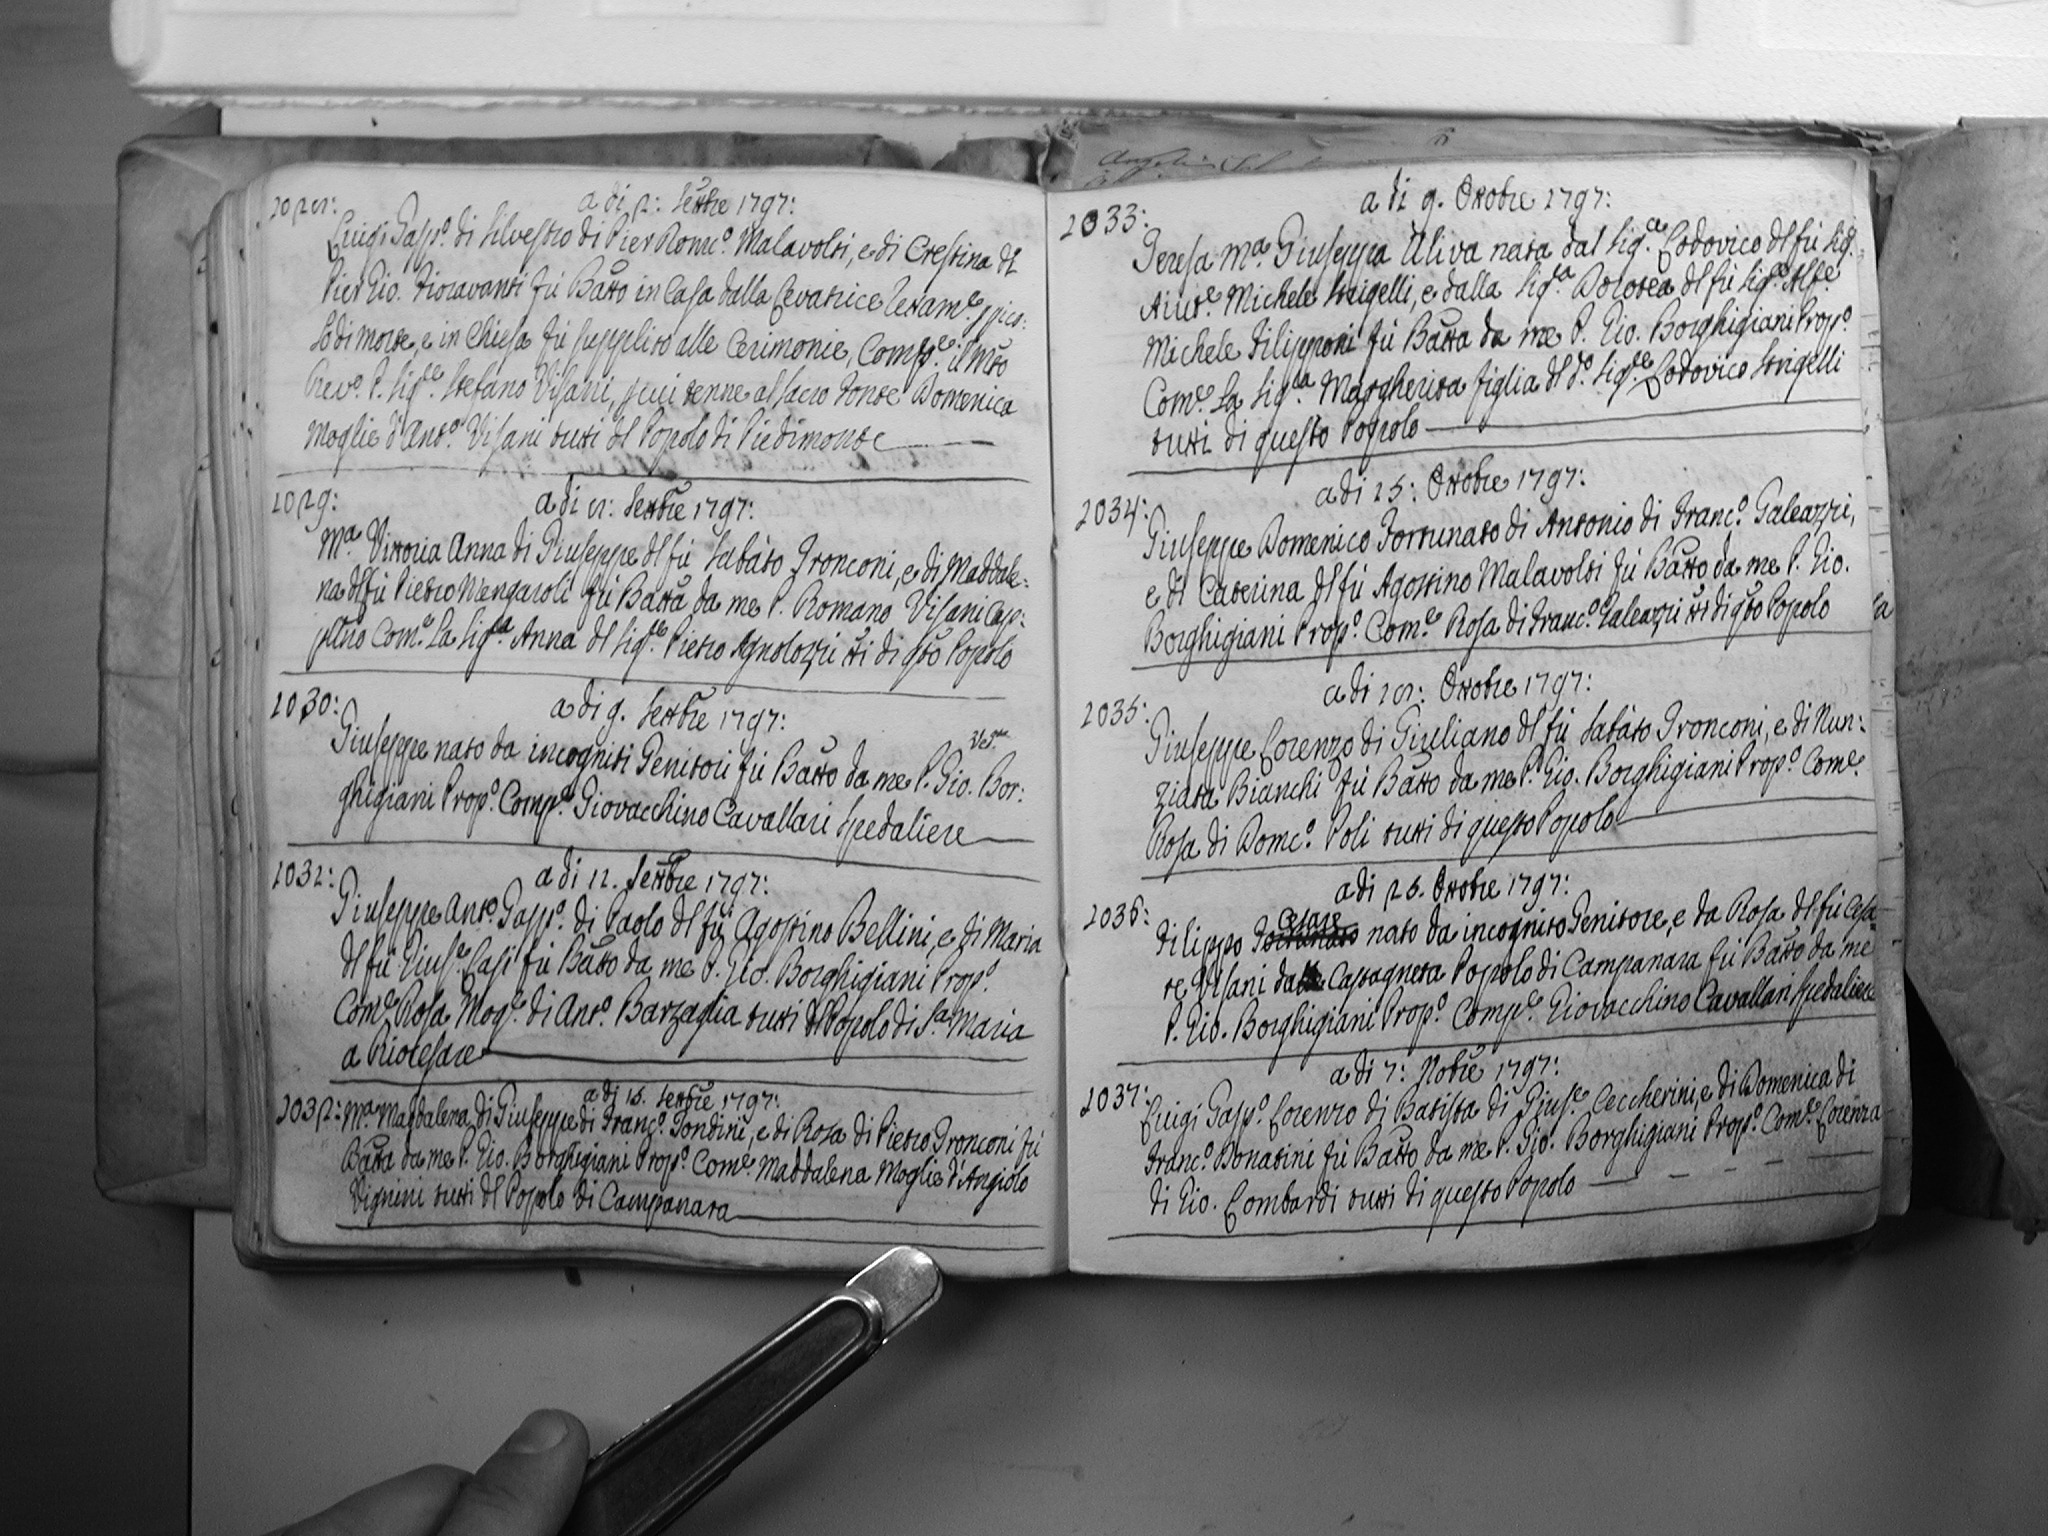 2028:
a di 2: Settbre 1797:
Luigi Gasp.º di Silvestro di Pier Dom.co Malavolti, e di Crestina dl
Pier Gio. Fioravanti fù Batto in Casa dalla Levatrice
lo di morte, e in Chiesa fù supplito alle Cerimonie, Comp.e il Mto
Rev.º P. Sig.re Stefano Visani, tenne al Sacro Fonte Domenica
Moglie d'Ant.º Visani tutti dl Popolo di Piedimonte
2029:
a di 8: Settbre 1797:
M.a Vittoria Anna di Giuseppe dl fù Sabàto Tronconi, e di Maddale:
na dl fù Pietro Mengaroli fù Batta da me P. Romano Visani Cap:
plno Com.e La Sig.ra Anna dl Sig.re Pietro Agnolozzi tti di qto Popolo
2030:
a di 9. Settbre 1797:
Giuseppe nato da incogniti Genitori fù Batto da me P. Gio. Bor:
ghigiani Prop.º Comp.e Giovacchino Cavallari Spedaliere
2031:
a di 11. Settbre 1797:
Giuseppe Ant.º Gasp.º di Paolo dl fù Agostino Bellini, e di Maria
dl fù Gius.e Casi fù Batto da me P. Gio. Borghigiani Prop.º
Com.e Rosa Mog.e di Ant.º Barzaglia tutti dl Popolo di S.a Maria
a Riocesare
2032:
a di 15. Settbre 1797:
M.a Maddalena di Giuseppe di Franc.º Tondini, e di Rosa di Pietro Tronconi fù
Batta da me P. Gio. Borghigiani Prop.º Com.e Maddalena Moglie d'Angiolo
Vignini tutti dl Popolo di Campanara
2033:
a di 9. Ottobre 1797:
Teresa M.a Giuseppa Uliva nata dal Sig.re Lodovico dl fù Sig.
Aiut.e Michele Strigelli, e dalla Sig.ra Dorotea dl fù Sig.re Alf.e
Michele Filipponi fù Batta da me P. Gio. Borghigiani Prop.º
Com.e La Sig.ra Margherita figlia dl d.º Sig.re Lodovico Strigelli
tutti di questo Popolo
2034:
a di 15: Ottobre 1797:
Giuseppe Domenico Fortunato di Antonio di Franc.º Galeazzi,
e di Caterina dl fù Agostino Malavolti fù Batto da me P. Gio.
Borghigiani Prop.º Com.e Rosa di Franc.º Galeazzi tti di qto Popolo
2035:
a di 18: Ottobre 1797:
Giuseppe Lorenzo di Giuliano dl fù Sabàto Tronconi, e di Nun:
ziata Bianchi fù Batto da me P. Gio. Borghigiani Prop.º Com.e
Rosa di Dom.co Poli tutti di questo Popolo
2036:
a di 25. Ottobre 1797:
Cesare
Filippo Fortunato nato da incognito Genitore, e da Rosa dl fù Cesa
re Visani Castagneta Popolo di Campanara fù Batto da me
P. Gio. Borghigiani Prop.º Comp.e Giovacchino Cavallari Spedaliere
2037:
a di 7: Nobre 1797:
Luigi Gasp.º Lorenzo di Batista di Gius.e Ceccherini, e di Domenica di
Franc.º Donatini fù Batto da me P. Gio. Borghigiani Prop.º Com.e Lorenza
di Gio. Lombardi tutti di questo Popolo